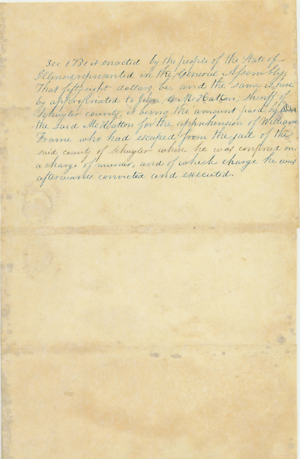 Sec 1 Be it enacted by the people of the State of
Illinois represented in the General Assembly,
That fifty eight dollars be and the same is hereby
appropriated to John McHatton, Sheriff of
Schuyler county, it being the amount paid by
the said McHatton for the apprehension of William
Frame who had escaped from the jail of the
said county of Schuyler where he was confined on
a charge of murder, and of which charge he was
afterwards convicted and executed.